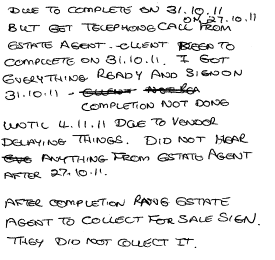 DUE TO COMPLETE ON 31.10.11
ON 27.10.11
BUT GET TELEPHONE CALL FROM
ESTATE AGENT - CLIENT KEEN TO
COMPLETE ON 31.10.11. I GOT
EVERYTHING READY AND SIGN ON
31.10.11 -
COMPLETION NOT DONE
UNTIL 4.11.11 DUE TO VENDOR
DELAYING THINGS. DID NOT HEAR
ANYTHING FROM ESTATE AGENT
AFTER 27.10.11.
AFTER COMPLETION RANG ESTATE
AGENT TO COLLECT FOR SALE SIGN.
THEY DID NOT COLLECT IT.